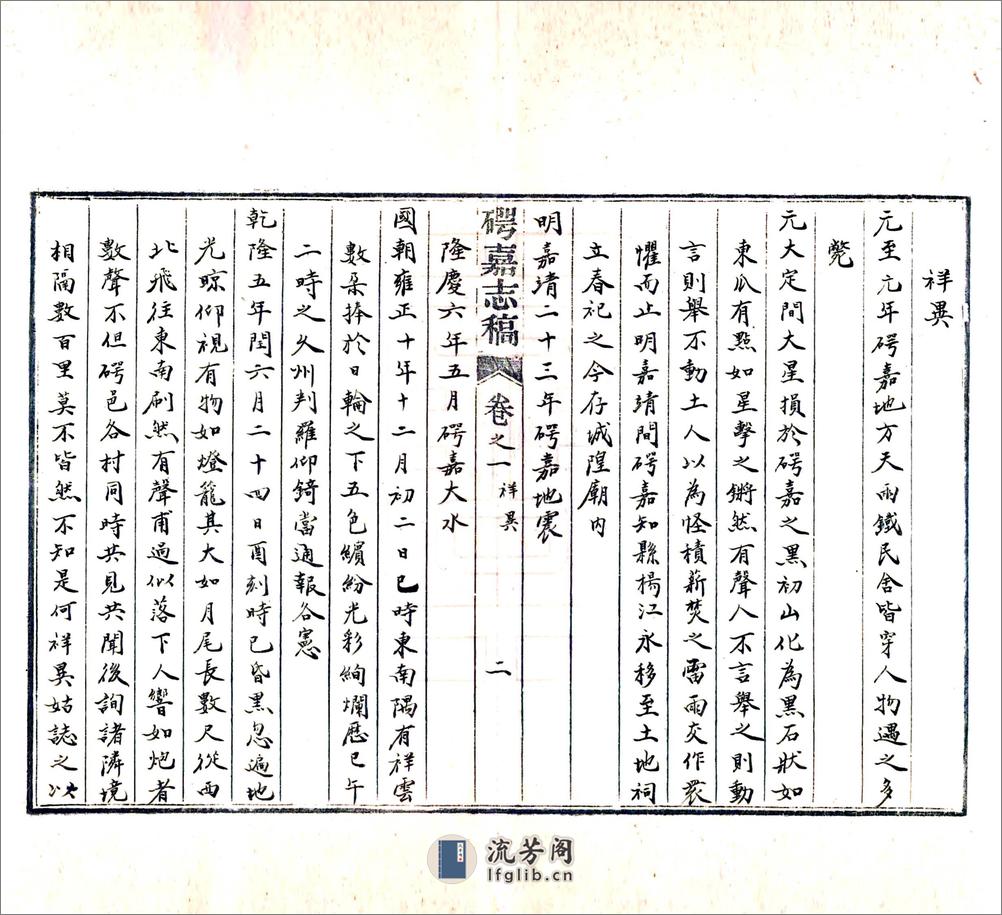 祥異
元至元年碍嘉地方天雨鐵民舍皆穿人物遇之多
斃
元大定間大星損於碍嘉之黑初山化為黑石狀如
東瓜有點如星擊之鏘然有聲人不言舉之則動
言則舉不動土人以為怪積薪焚之雷雨交作衆
懼而止明嘉靖間碍嘉知縣楊江永移至土地祠
立春祀之今存城隍廟內
明嘉靖二十三年碍嘉地震
隆慶六年五月碍嘉大水
碍嘉志稿
卷之一
祥異
二
國朝雍正十年十二月初二日巳時東南隅有祥雲
數朶捧於日輪之下五色繽紛光彩絢爛歷巳午
二時之久州判羅仰錡當通報各憲
乾隆五年閏六月二十四日酉刻時已昏黑忽遍地
光晾仰視有物如燈籠其大如月尾長數尺從西
北飛往東南刷然有聲甫過似落下人響如炮者
數聲不但碍邑各村同時共見共聞後詢諸隣境
相隔數百里莫不皆然不知是何祥異姑誌之以
流芳阁
lfglib.cn